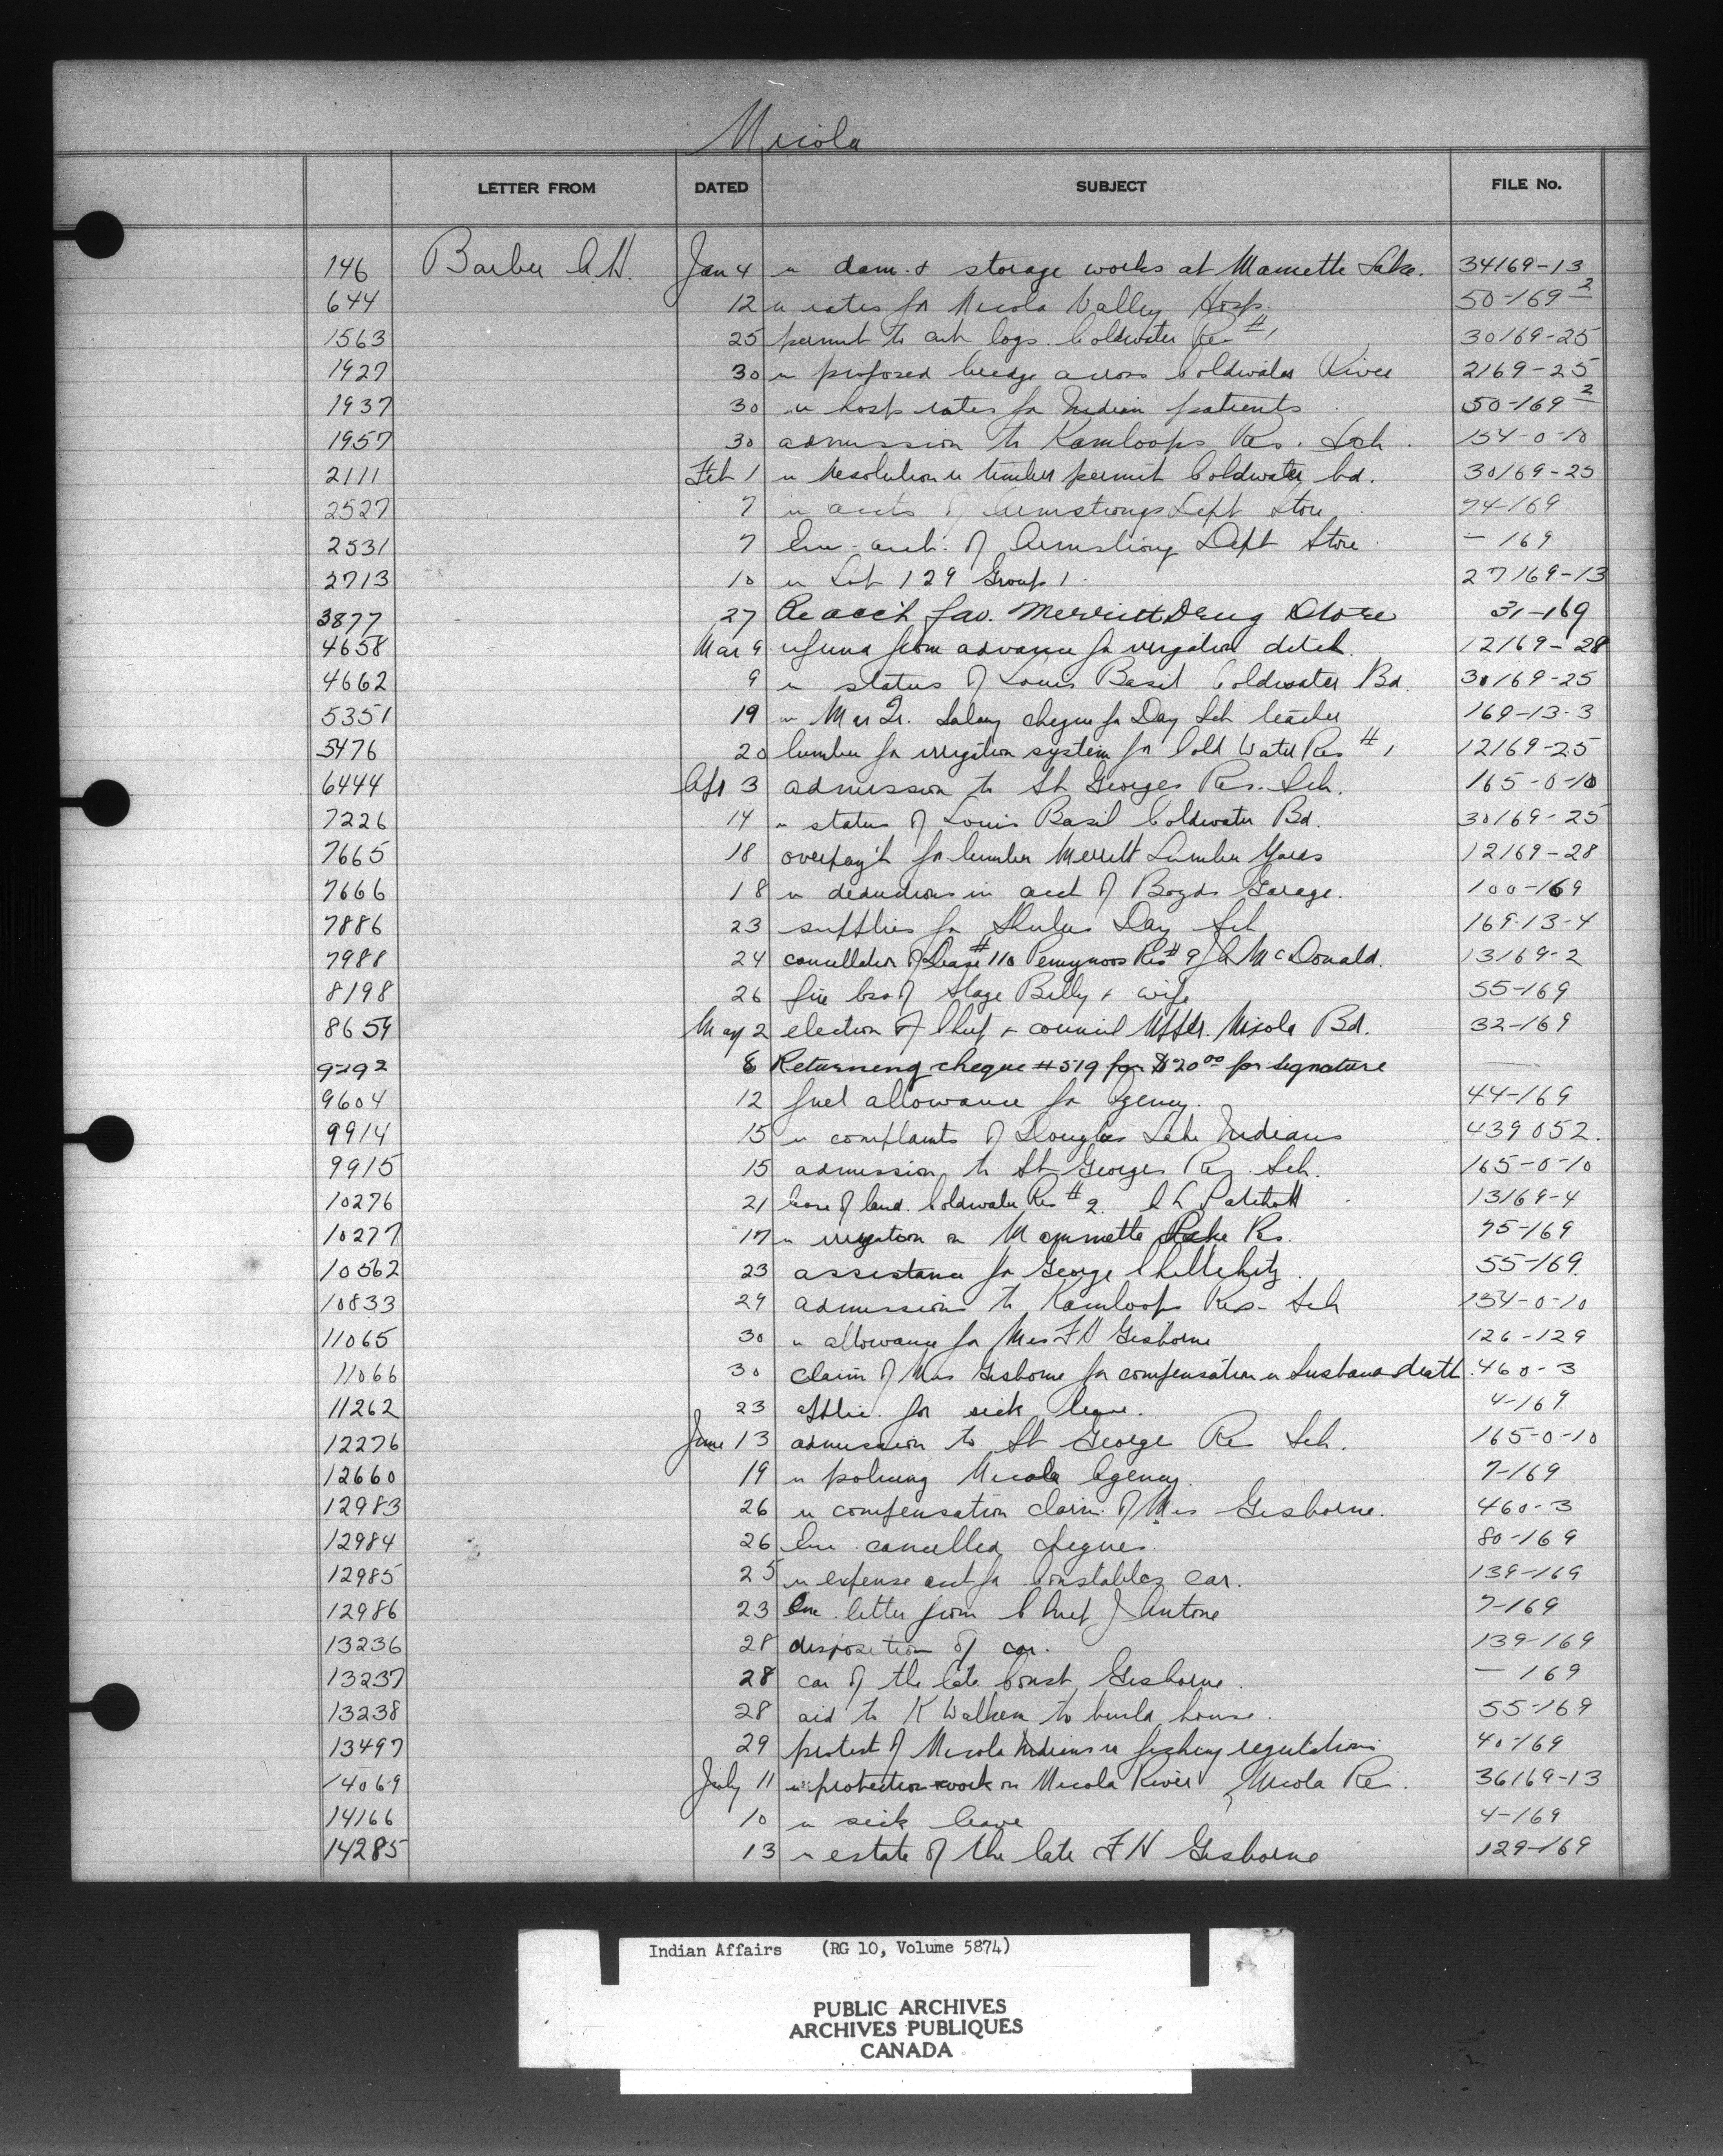 Nicola
LETTER FROM DATED SUBJECT FILE No.
146 Barber A.H. Jan 4 re dam & storage works at Mamette Lake. 34169-13
644 12 re rates for Nicola Valley Hosp. 50-169-2
1563 25 permit to cut logs Coldwater Res #1 30169-25
1927 30 re proposed bridge across Coldwater River 2169-25
1937 30 re hosp rates for Indian patients 50-169-2
1957 30 admission to Kamloops Res. Sch. 154-0-10
2111 Feb 1 re resolution re timber permit Coldwater Bd. 30169-25
2527 7 re accts of Armstrongs Dept Store 74-169
2531 7 Enc. acct. of Armstrong Dept Store - 169
2713 10 re Lot 129 Group 1. 27169-13
3877 27 Re acc't fav. Merritt Drug Store 31-169
4658 Mar 9 refund from advance for irrigation ditch. 12169-28
4662 9 re status of Louis Basil Coldwater Bd. 30169-25
5351 19 re Mar Qr. Salary cheque for Day Sch teacher 169-13-3
5476 20 lumber for irrigation system for Cold Water Res #1 12169-25
6444 Apr 3 admission to St Georges Res. Sch. 165-0-10
7226 14 re status of Louis Basil Coldwater Bd. 30169-25
7665 18 overpay't for lumber Merritt Lumber Yards 12169-28
7666 18 re deductions in acct of Boyds Garage. 100-169
7886 23 supplies for Shulus Day Sch 169-13-4
7988 24 cancellation of Lease #110 Pennynoos Res #9 J A McDonald. 13169-2
8198 26 fire loss of Slage Billy & wife 55-169
8654 May 2 election of Chief & council Upper Nicola Bd. 32-169
9292 8 Returning cheque #519 for $20.00 for signature —
9604 12 fuel allowance for Agency. 44-169
9914 15 re complaints of Douglas Lake Indians 439052.
9915 15 admission to St Georges Res. Sch. 165-0-10
10276 21 lease of land. Coldwater Res #2. A L Patchett 13169-4
10277 17 re irrigation on Mammette Lake Res. 75-169
10562 23 assistance for George 55-169.
10833 29 admission to Kamloops Res- Sch 154-0-10
11065 30 re allowance for Mrs F H Gisborne 126-129
11066 30 claim of Mrs Gisborne for compensation re husbands death. 460-3
11262 23 applic. for sick leave. 4-169
12276 June 13 admission to St George Res Sch. 165-0-10
12660 19 re policing Nicola Agency. 7-169
12983 26 re compensation claim of Mrs Gisborne. 460-3
12984 26 Enc. cancelled cheques. 80-169
12985 25 re expense acct for Constables car. 139-169
12986 23 Enc letter from Chief J Antone 7-169
13236 28 disposition of car. 139-169
13237 28 car of the late Const Gisborne. - 169
13238 28 aid to K Walkem to build house. 55-169
13497 29 protest of Nicola Indians re fishery regulations 40-169
14069 July 11 re protection work on Nicola River, Nicola Res. 36169-13
14166 10 re sick leave 4-169
14285 13 re estate of the late F H Gisborne 129-169
Indian Affairs (RG 10, Volume 5874)
PUBLIC ARCHIVES
ARCHIVES PUBLIQUES
CANADA